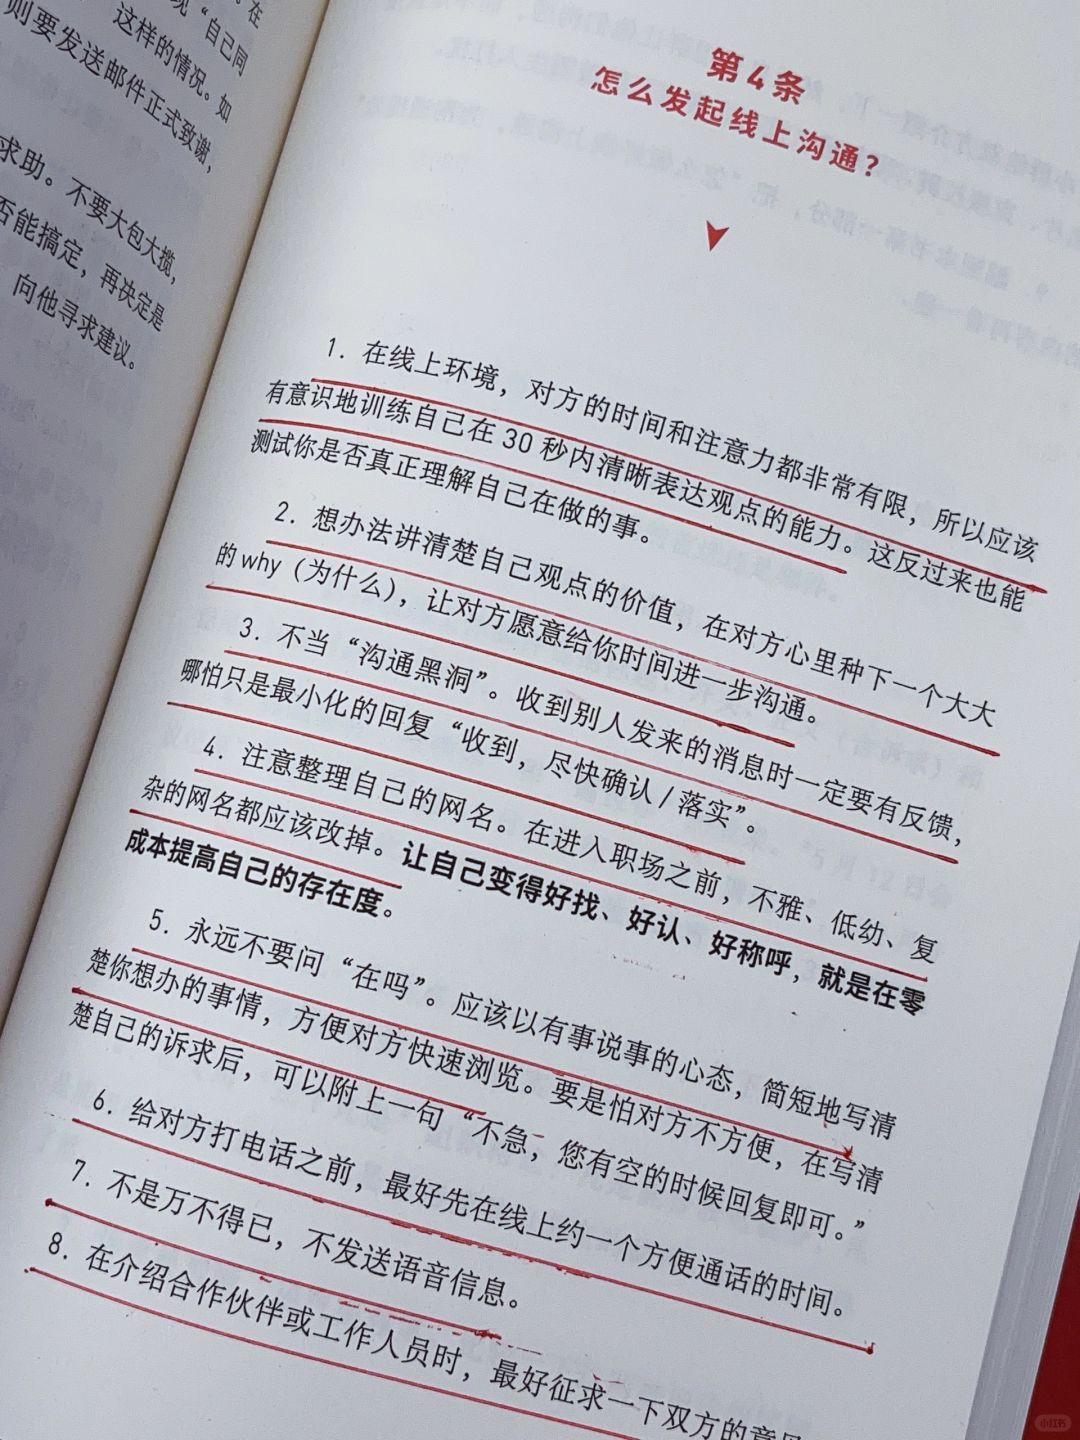 。在
现“自己同
这样的情况。如
则要发送邮件正式致谢，
求助。不要大包大揽，
否能搞定，再决定是
向他寻求建议。
第4条
怎么发起线上沟通？
1. 在线上环境，对方的时间和注意力都非常有限，所以应该
有意识地训练自己在30秒内清晰表达观点的能力。这反过来也能
测试你是否真正理解自己在做的事。
2. 想办法讲清楚自己观点的价值，在对方心里种下一个大大
的why（为什么），让对方愿意给你时间进一步沟通。
3. 不当“沟通黑洞”。收到别人发来的消息时一定要有反馈，
哪怕只是最小化的回复“收到，尽快确认/落实”。
4. 注意整理自己的网名。在进入职场之前，不雅、低幼、复
杂的网名都应该改掉。让自己变得好找、好认、好称呼，就是在零
成本提高自己的存在度。
5. 永远不要问“在吗”。应该以有事说事的心态，简短地写清
楚你想办的事情，方便对方快速浏览。要是怕对方不方便，在写清
楚自己的诉求后，可以附上一句“不急，您有空的时候回复即可。”
6. 给对方打电话之前，最好先在线上约一个方便通话的时间。
7. 不是万不得已，不发送语音信息。
8. 在介绍合作伙伴或工作人员时，最好征求一下双方的意见
小红书